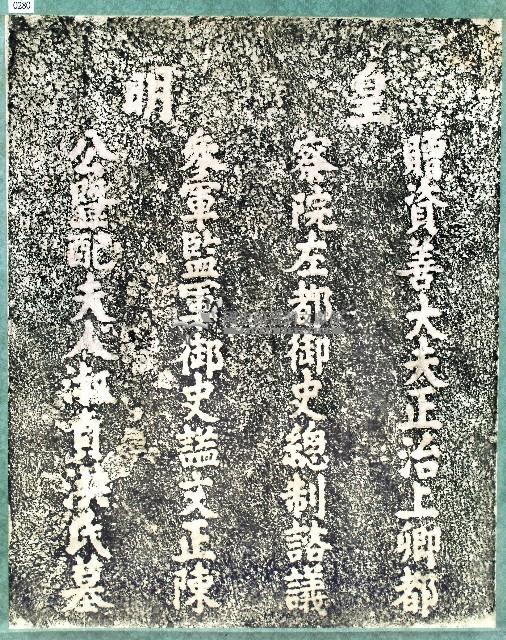 0280
皇明
贈資善大夫正治上卿都
察院左都御史總制諮議
參軍監軍御史諡文正陳
公暨配夫人淑貞洪氏墓